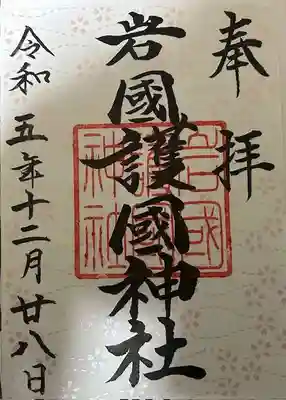 奉拝
岩國護國神社
令和五年十二月廿八日
岩國
護國
神社